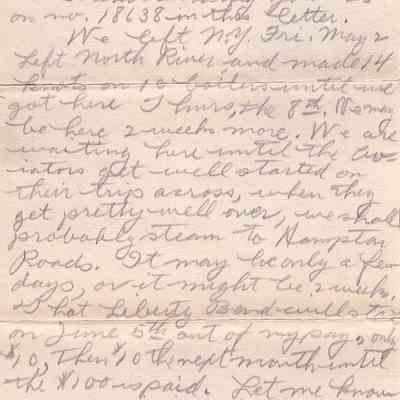 on no. 18638 in this letter.
We left N.Y. Fri. May 2
Left North River and made 14
knots on 10 boilers until we
got here Thurs, the 8th. We may
be here 2 weeks more. We are
waiting here until the av-
iators get well started on
their trip across, when they
get pretty well over, we shall
probably steam to Hampton
Roads. It may be only a few
days, or it might be 2 weeks.
That Liberty Bond will start
on June 5th out of my pay, only
$10, then $10 the next month until
the $100 is paid. Let me know